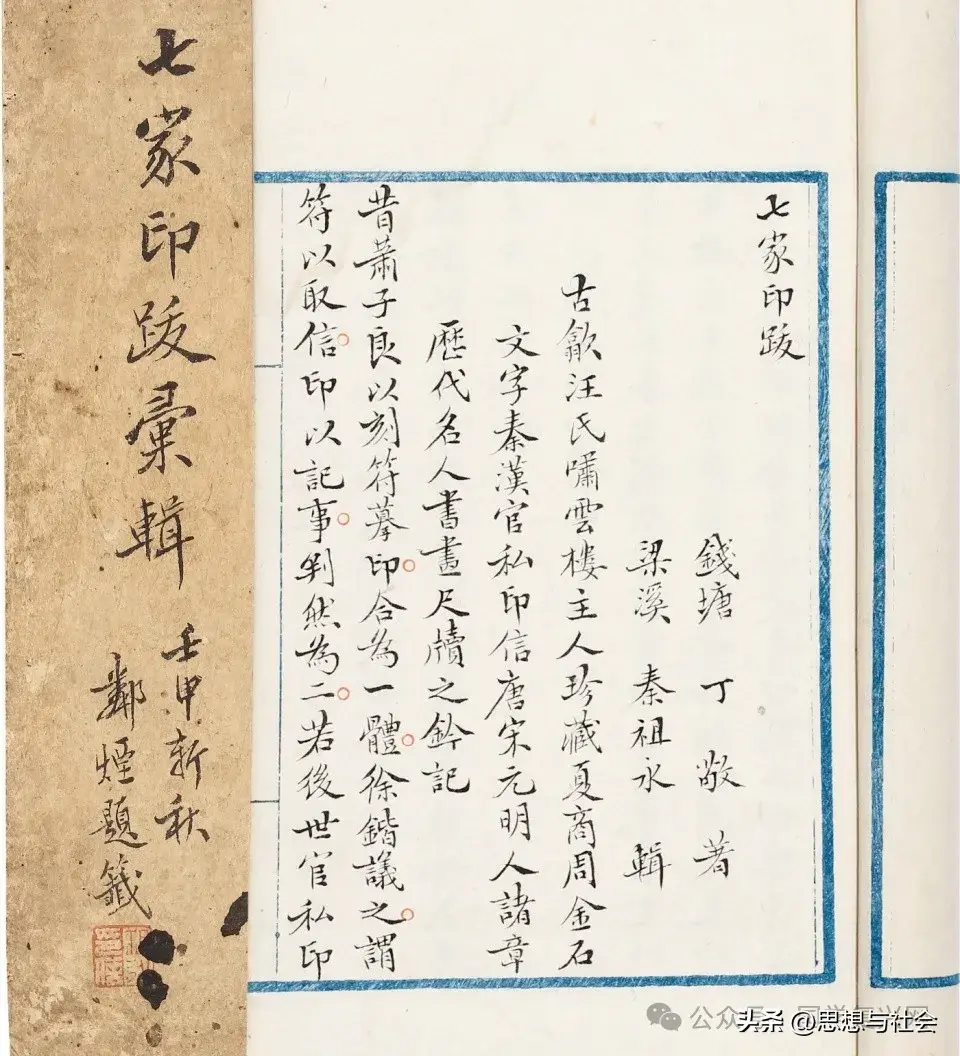 七家印跋彙輯
壬申新秋
鄰煙題籤
七家印跋
錢塘 丁敬 著
梁溪 秦祖永 輯
古歙汪氏嘯雲樓主人珍藏夏商周金石
文字秦漢官私印信唐宋元明人諸章
歷代名人書畫尺牘之鈐記
昔蕭子良以刻符摹印合為一體徐鍇議之謂
符以取信印以記事判然為二若後世官私印
公众号
头条 @思想与社会